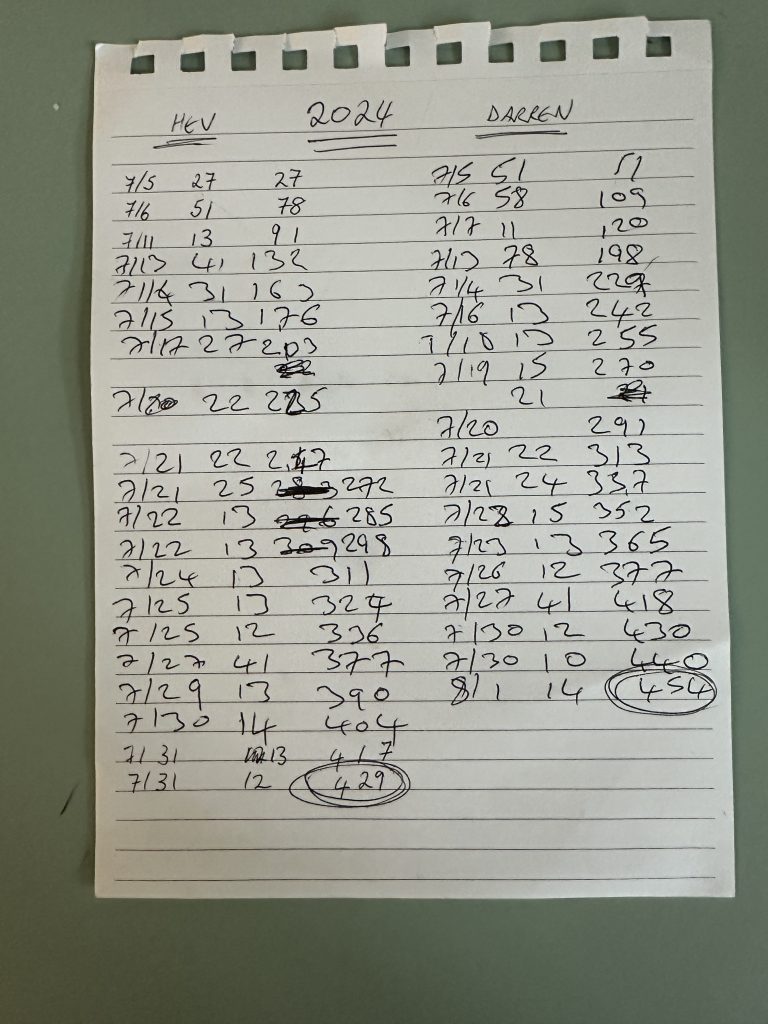 HEV 2024 DARREN
7/5 27 27 7/5 51 51
7/6 51 78 7/6 58 109
7/11 13 91 7/7 11 120
7/13 41 132 7/13 78 198
7/14 31 163 7/14 31 229
7/15 13 176 7/16 13 242
7/17 27 203 7/18 13 255
7/19 15 270
7/20 22 225 21
7/20 291
7/21 22 247 7/21 22 313
7/21 25 272 7/21 24 337
7/22 13 285 7/23 15 352
7/22 13 309 298 7/23 13 365
7/24 13 311 7/26 12 377
7/25 13 324 7/27 41 418
7/25 12 336 7/30 12 430
7/27 41 377 7/30 10 440
7/29 13 390 8/1 14 454
7/30 14 404
7/31 13 417
7/31 12 429